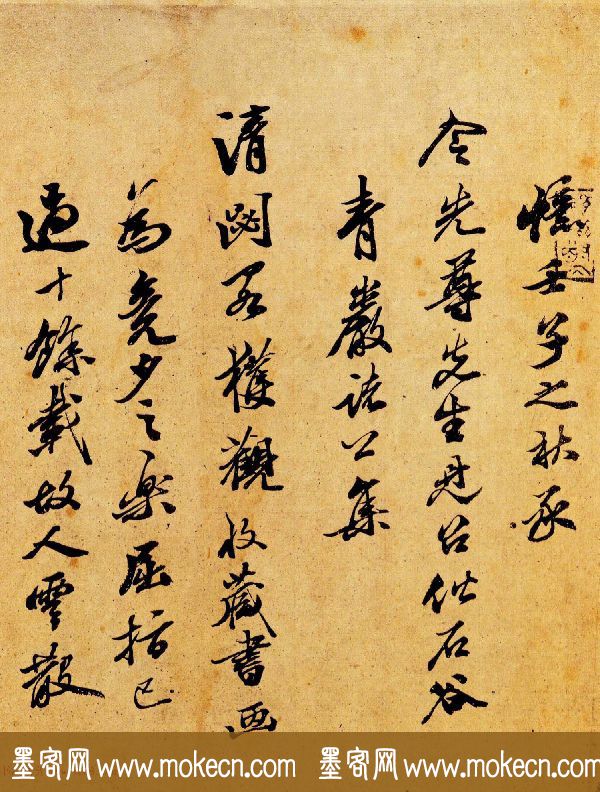 憶壬子之秋承
令先尊先生見召偕石谷
青巖諸公集
清閟畧獲觀收藏書画
為竟夕之樂屈指已
過十餘載故人雲散
墨客网 www.mokecn.com 墨客网 www.mokecn.com